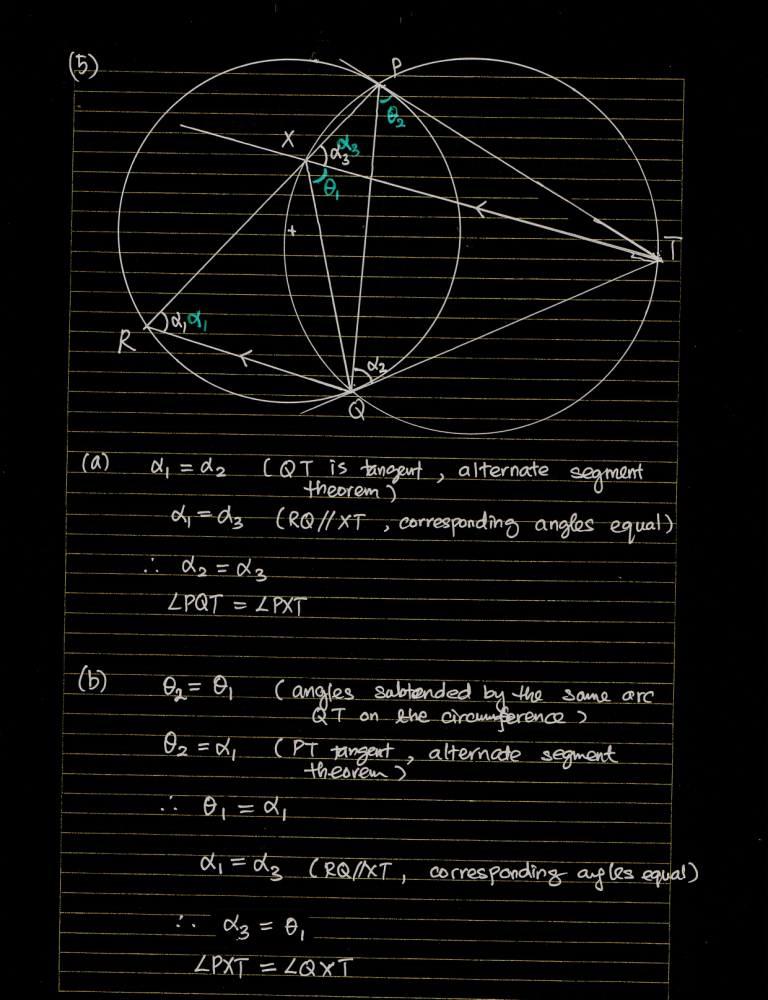 (5)
P
θ₂
X
α₃ α₃
θ₁
T
R
α₁ α₁
α₂
Q
(a) α₁ = α₂ (QT is tangent, alternate segment
theorem)
α₁ = α₃ (RQ // XT, corresponding angles equal)
∴ α₂ = α₃
∠PQT = ∠PXT
(b) θ₂ = θ₁ (angles subtended by the same arc
QT on the circumference)
θ₂ = α₁ (PT tangent, alternate segment
theorem)
∴ θ₁ = α₁
α₁ = α₃ (RQ//XT, corresponding angles equal)
∴ α₃ = θ₁
∠PXT = ∠QXT